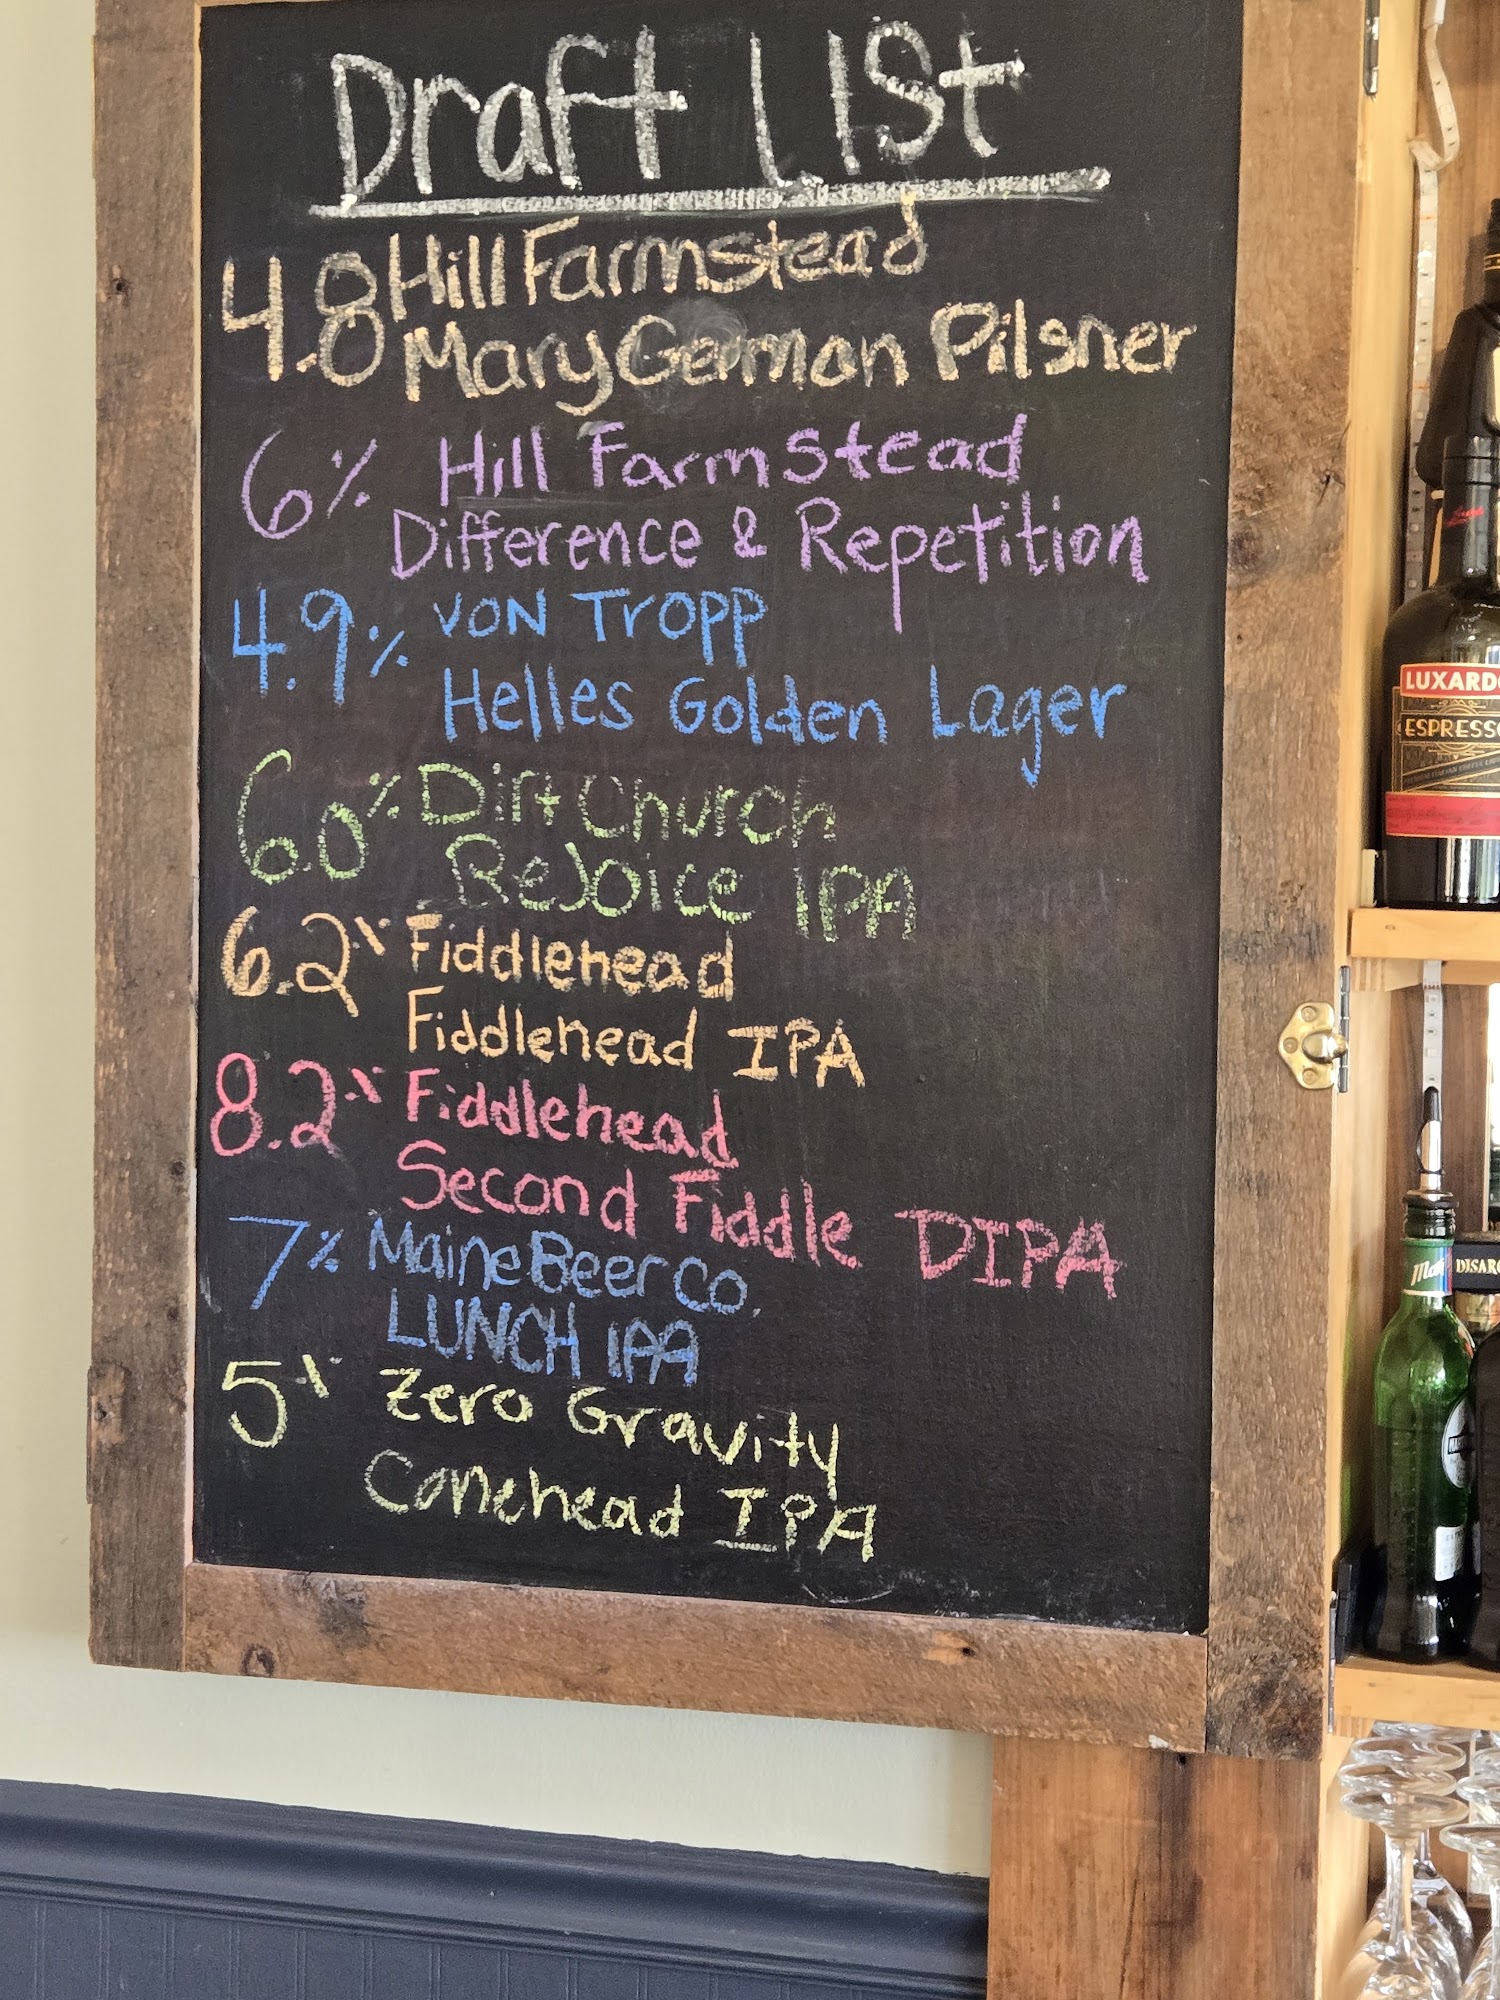 Draft LISt
4.8 Hill Farmstead
Mary German Pilsner
6% Hill Farmstead
Difference & Repetition
4.9% VON TROPP
Helles Golden Lager
6.0% Dirt Church
ReJoice IPA
6.2% Fiddlehead
Fiddlehead IPA
8.2% Fiddlehead
Second Fiddle DIPA
7% Maine Beer Co.
LUNCH IPA
5% Zero Gravity
Conehead IPA
LUXARDO
ESPRESSO